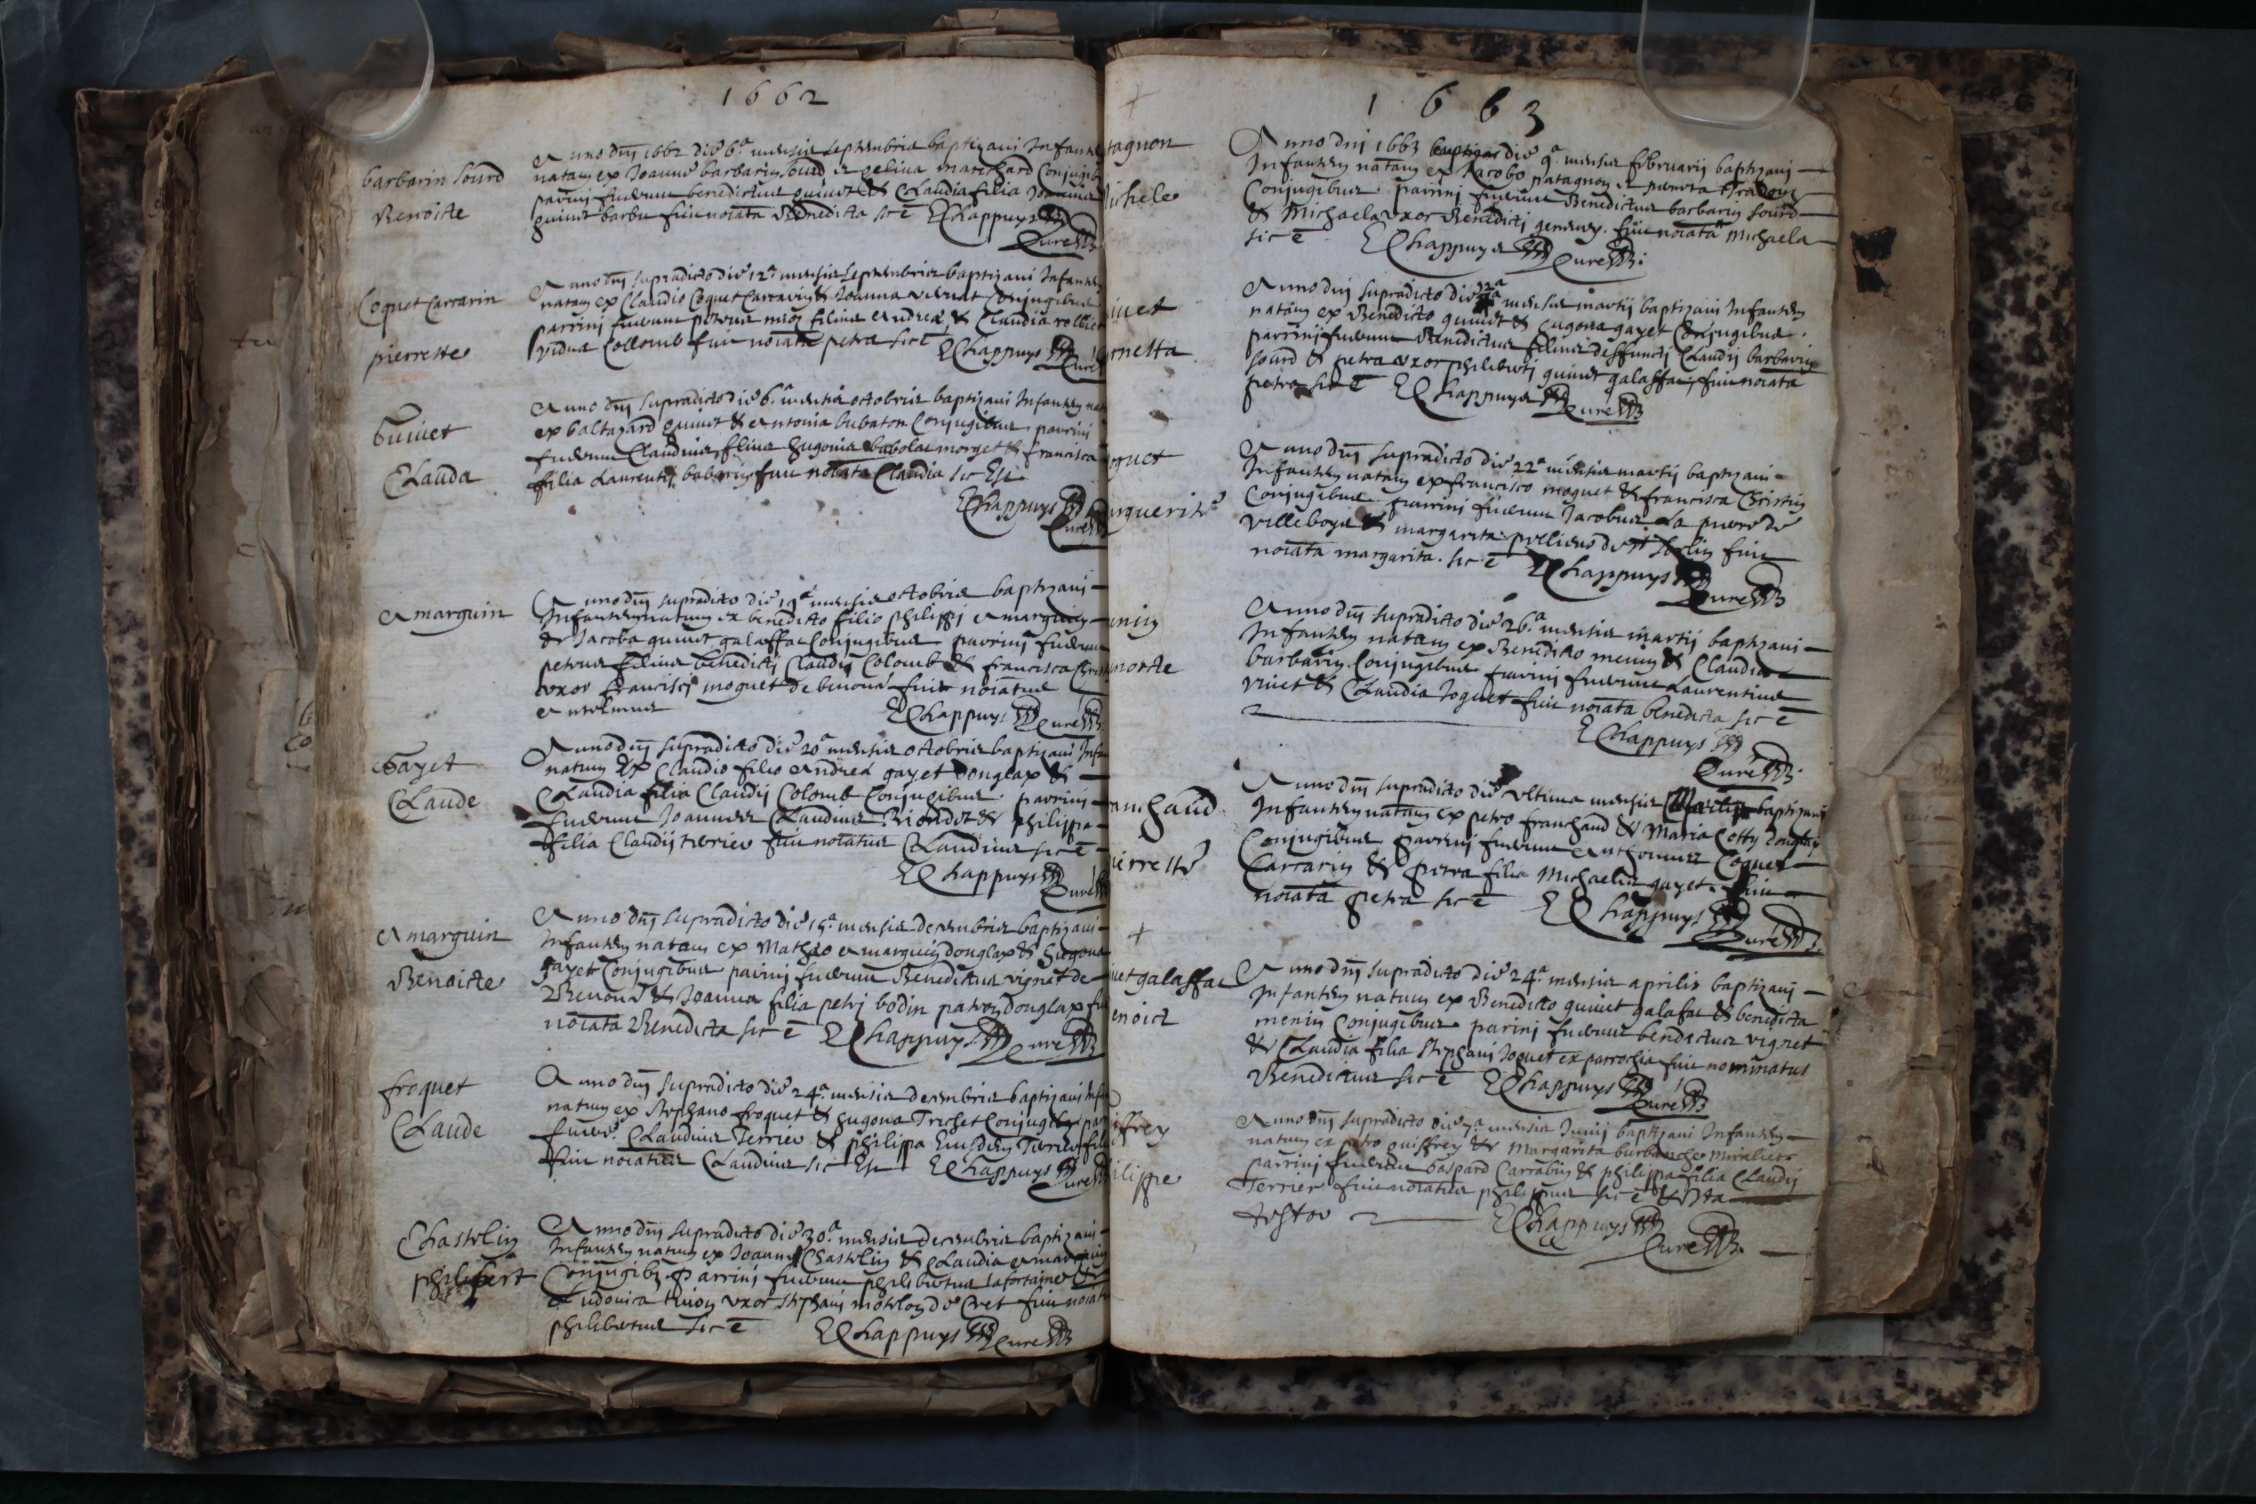 1662
barbarin sourd
Benoiste
Anno dnj 1662 die 6.a mensis septembris baptizavi Infante
natam ex Joanne barbarin sourd et marichard Conjugib
parinj fuerunt benedictus quinet & Claudia filia
quinet barbu fuit noiata Benedicta sic ē E Chappuys
Curé
Coquet Carcarin
pierrette
Anno dnj supradicto die 12.a mensis septembris baptizavi Infantem
natam ex Claudio Coquet Carcarin & Joanna Conjugibus
parrinj fuerunt petrus filius Andreæ & Claudia
vidua Collomb fuit noiata petra sic ē E Chappuys
Curé
quinet
Clauda
Anno dnj supradicto die 6.a mensis octobris baptizavi Infantem nat
ex baltazard quinet & Antonia bubaton Conjugibus parrini
fuerunt Claudius filius hugonis morget & francisca
filia Laurentij babarin fuit noiata Claudia sic Est
E Chappuys
Curé
Amarguin
Anno dnj supradicto die 19.a mensis octobris baptizavi
Infantem natum ex benedicto filio philippi Amarguin
& Jacoba quinet galaffa Conjugibus parrinj fuerunt
petrus filius benedictj Claudij Colomb & francisca
uxor franciscj moguet de benona fuit noiatus
Antelmus E Chappuys Curé
Gayet
Claude
Anno dnj supradicto die 20.a mensis octobris baptizavi Infa
natum Ex Claudio filio Andreæ gayet Donglax &
Claudia filia Claudij Colomb Conjugibus parrinj
fuerunt Joannes Claudius Riondet & philippa
filia Claudij terrier fuit noiatus Claudius sic ē
E Chappuys
Curé
Amarguin
Benoiste
Anno dnj supradicto die 15.a mensis decembris baptizavi
Infantem natam ex Matheo Amarguin donglax & hugona
gayet Conjugibus parinj fuerunt Benedictus vignet de
Benone & Joanna filia petrj bodin patron donglax fu
noiata Benedicta sic ē E Chappuys Curé
froquet
Claude
Anno dnj supradicto die 24.a mensis decembris baptizavi Infa
natum ex stephano froquet & hugona Trichet Conjugibus par
fuer. Claudius Terrier & philippa Eiusdem Terrier fili
fuit noiatus Claudius sic Est E Chappuys
Curé
Chastelin
philibert
Anno dnj supradicto die 30.a mensis decembris baptizavi
Infantem natum ex Joanne Chastelin & Claudia Amarguin
Conjugib; parrinj fuerunt philibertus lafortaine &
Ludovica uxor stephani de Cret fuit noiatu
philibertus sic ē E Chappuys Curé
1663
tagnon
ichele
Anno dnj 1663 die 9.a mensis februarij baptizavi
Infantem natam ex Jacobo patagnon et
Conjugibus parrinj fuerunt Benedictus barbarin sourd
& Michaela uxor Benedictj genevey fuit noiata Michaela
sic ē E Chappuys Curé
inet
rnetta
Anno dnj supradicto die 12.a mensis martij baptizavi Infantem
natam ex Benedicto quinet & hugona gayet Conjugibus
parrinj fuerunt Benedictus filius deffunctj Claudij barbarin
sourd & petra uxor philibertj quinet galaffa, fuit noiata
petra sic ē E Chappuys Curé
oguet
rguerite
Anno dnj supradicto die 22.a mensis martij baptizavi
Infantem natam ex francisco moguet & francisca Christin
Conjugibus parrinj fuerunt Jacobus La pierre de
villeboys & margarita de st Sorlin fuit
noiata margarita. sic ē E Chappuys
Curé
enin
noiste
Anno dnj supradicto die 26.a mensis martij baptizavi
Infantem natam ex Benedicto menin & Claudia
barbarin Conjugibus parinj fuerunt Laurentius
vinet & Claudia Joguet fuit noiata benedicta sic ē
E Chappuys
Curé
anchaud
ierrette
Anno dnj supradicto die ultima mensis baptizavi
Infantem natam ex petro franchaud & Maria Cotty donglax
Conjugibus parrinj fuerunt Anthonius Coquet
Carcarin & petra filia Michaelis gayet. fuit
noiata petra sic ē E Chappuys
Curé
et galaffa
enoict
Anno dnj supradicto die 24.a mensis aprilis baptizavj
Infantem natum ex Benedicto quinet galafa & benedicta
menin Conjugibus parinj fuerunt benedictus vignet
& Claudia filia stephani Joguet ex parrochia fuit nominatus
Benedictus sic ē E Chappuys
Curé
iffrey
ilippe
Anno dnj supradicto die 7.a mensis Junij baptizavi Infantem
natum ex petro guiffrey & Margarita
parrinj fuerunt gaspard Carrabin & philippa filia Claudij
Terrier fuit noiatus philippus sic ē & Ita
testor E Chappuys
Curé